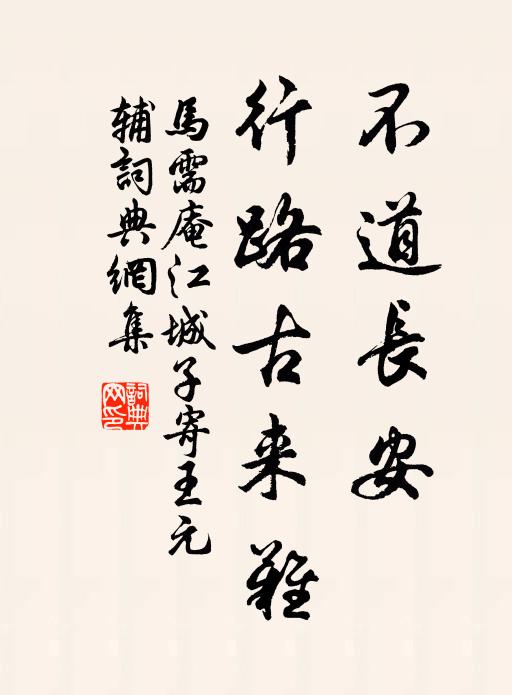 不道長安
行路古来難
馬需庵江城子寄王元
辅詞典網集
詞典
网印